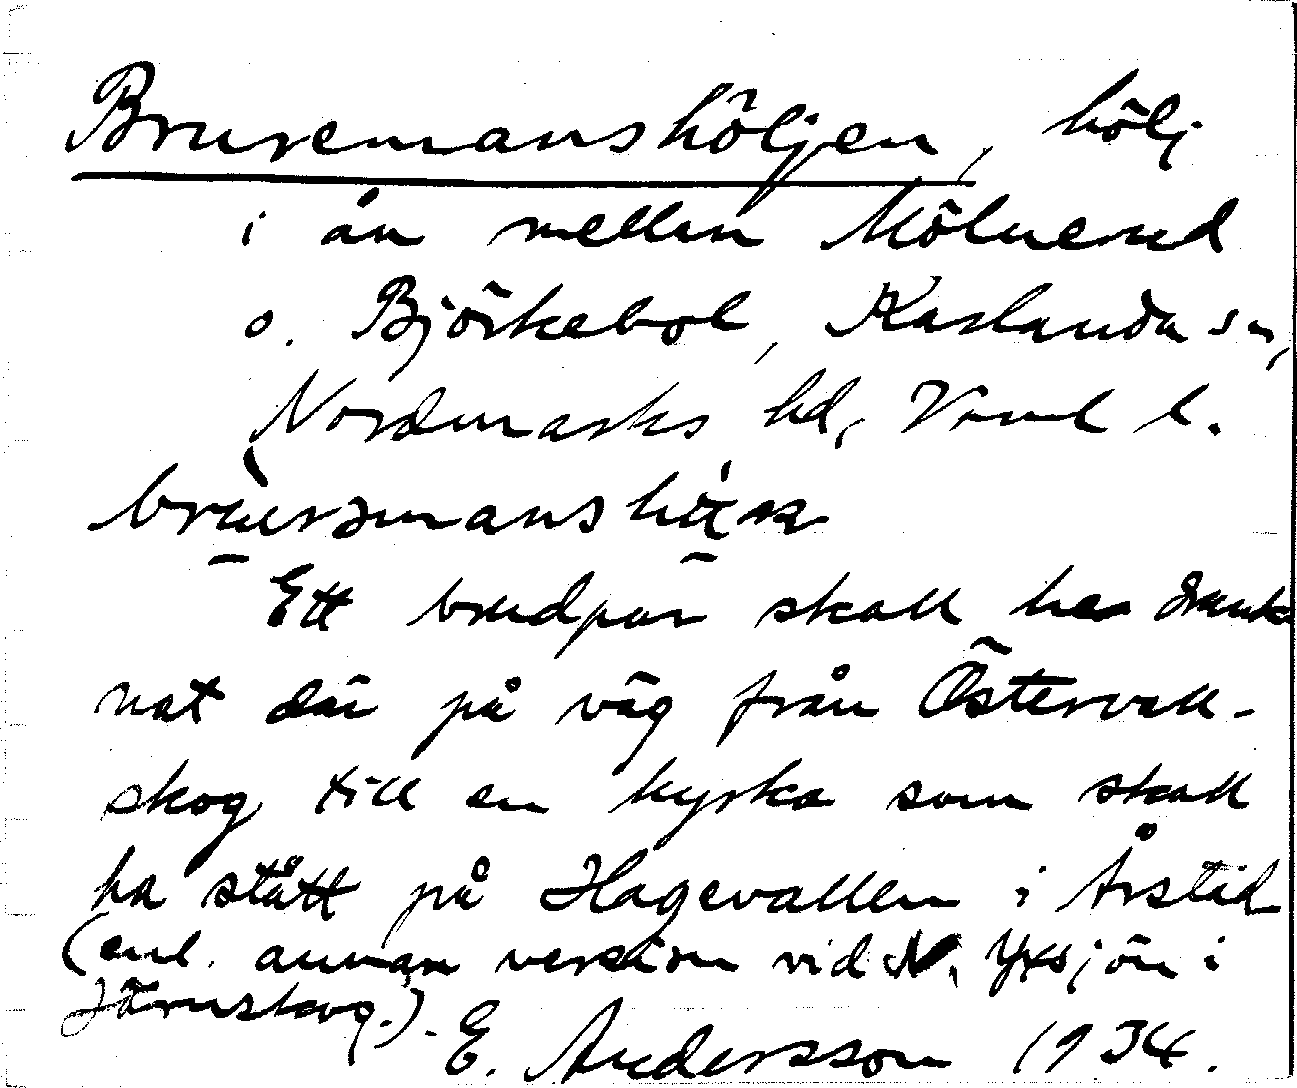 Bruremanshöljen, hölj
i ån mellan Mölnerud
o. Björkebol, Karlanda sn,
Nordmarks hd, Värml l.
Ett brudpar skall ha drunk
nat där på väg från Östervall-
skog till en kyrka som skall
ha stått på Hagevallen i Årstad
(enl. annan version vid N. Yxsjön i
Järnskog.). E. Andersson 1934.